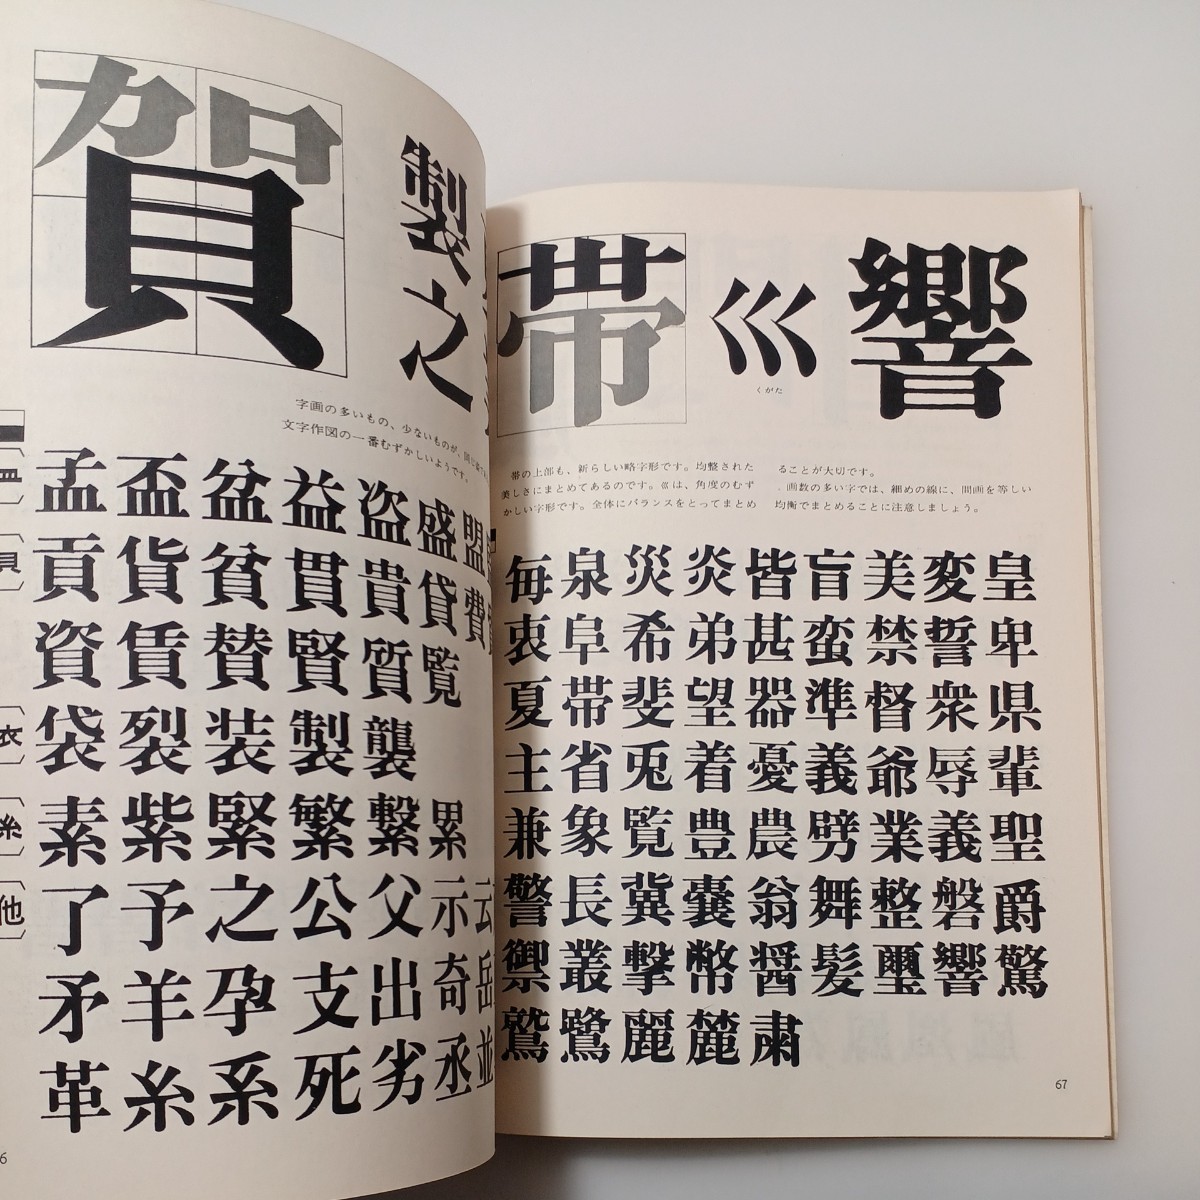 賀
製
之
字画の多いもの、少ないものが、
文字作図の一番むずかしいようです。
〔皿〕
孟盃盆益盗盛盟
〔貝〕
貢貨貧貫貴貸費
資賃賛賢質覧
〔衣〕
袋裂装製襲
〔糸〕
素紫緊繁繋累
〔他〕
了予之公父示云
矛羊孕支出奇岳
革糸系死劣丞並
6
帯
巛
くがた
響
帯の上部も、新らしい略字形です。均整された
美しさにまとめてあるのです。巛は、角度のむず
かしい字形です。全体にバランスをとってまとめ
ることが大切です。
画数の多い字では、細めの線に、間画を等しい
均衡でまとめることに注意しましょう。
毎泉災炎皆盲美変皇
衷阜希弟甚蛮禁誓卑
夏帯斐望器準督衆県
主省兎着憂義爺辱輩
兼象覧豊農劈業義聖
警長冀嚢翁舞整磐爵
禦叢撃幣醤髪璽響驚
鷲鷺麗麓粛
67